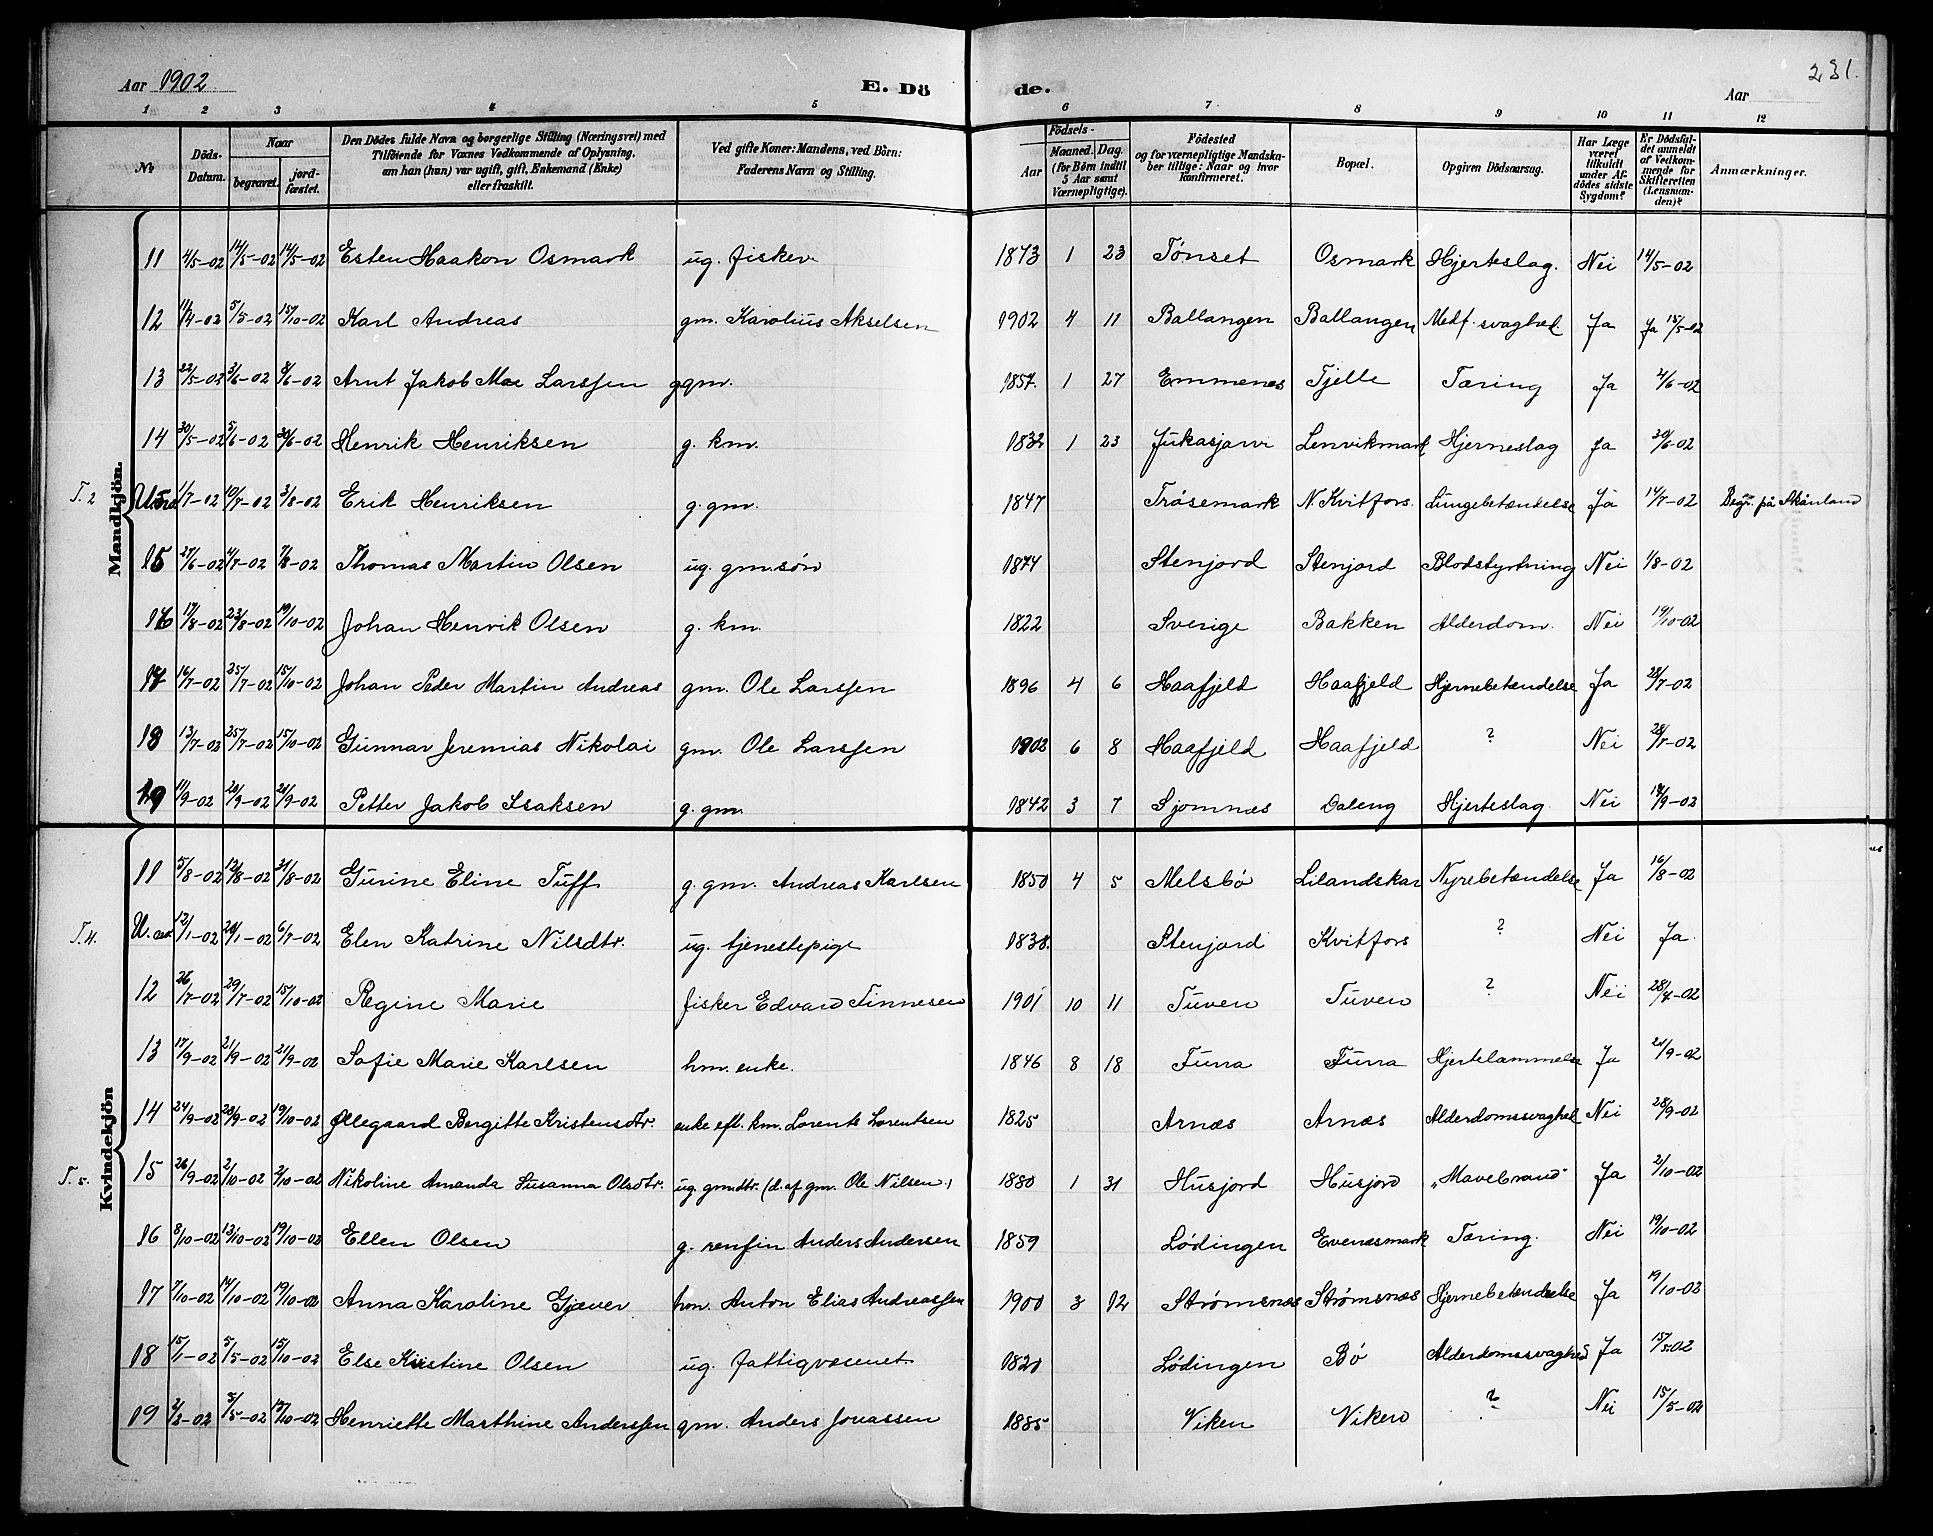 Aar 1902. E. Döde. Aar 231.
1 2 3 4 5 6 7 8 9 10 11 12
No
Döds-Datum.
Naar
begravet. jordfæstet.
Den Dödes fulde Navn og borgerlige Stilling (Næringsvei) med
Tilföiende for Voxnes Vedkommende af Oplysning,
om han (hun) var ugift, gift, Enkemand (Enke)
eller fraskilt.
Ved gifte Koner: Mandens, ved Börn:
Faderens Navn og Stilling.
Födsels-
Aar Maaned. Dag.
(for Börn indtil 5 Aar samt Værnepligtige).
Födested
og for værnepligtige Mandskaber tillige: Naar og hvor konfirmeret.
Bopæl.
Opgiven Dödsaarsag.
Har Læge været tilkaldt under Afdödes sidste Sygdom?
Er Dödsfaldet anmeldt af Vedkommende for Skifteretten (Lensmanden)?
Anmærkninger.
Mandkjön.
11 4/5-02 14/5-02 14/5-02 Esten Haakon Osmark ug. fisker 1873 1 23 Tønset Osmark Hjerteslag. Nei 14/5-02
12 11/4-02 5/5-02 15/10-02 Karl Andreas gm. Karolius Akselsen 1902 4 11 Ballangen Ballangen Medf. svaghed. Ja Ja 15/5-02
13 22/5-02 3/6-02 8/6-02 Arnt Jakob Larssen ggm. 1857. 1 27 Emmenes Tjelle Tæring Ja 2/6-02
14 30/5-02 5/6-02 30/6-02 Henrik Henriksen g. km. 1832 1 23 Jukasjarvi Lenvikmark Hjerneslag Ja 30/6-02
T. 2 1/7-02 10/7-02 3/8-02 Erik Henriksen g. gm. 1847 Trøsemark N. Kvitfors. Lungebetændelse Ja 14/7-02 Begr. på Skånland
15 27/6-02 4/7-02 7/8-02 Thomas Martin Olsen ug. gm.søn 1874 Stenjord Stenjord Blodstyrtning Nei 1/8-02
16 17/8-02 23/8-02 19/10-02 Johan Henrik Olsen g. km. 1822 Sverige Bakken Alderdom. Nei 19/10-02
17 16/7-02 25/7-02 15/10-02 Johan Peder Martin Andreas gm. Ole Larssen 1896 4 6 Haafjeld Haafjeld Hjernebetændelse Ja 28/7-02
18 13/7-02 25/7-02 15/10-02 Gunnar Jeremias Nikolai gm. Ole Larssen 1902 6 8 Haafjeld Haafjeld ? Nei 28/7-02
19 11/9-02 20/9-02 21/9-02 Petter Jakob Isaksen g. gm. 1842 3 7 Sjomnæs Daleng Hjerteslag. Nei 14/9-02
Kvindekjön
11 5/8-02 12/8-02 31/8-02 Gurine Eline Tuff g. gm. Andreas Karlsen 1850 4 5 Melsbö Lilandskar Nyrebetændelse Ja 16/8-02
T. 4. 12/1-02 20/1-02 6/7-02 Elen Katrine Nilsdtr. ug. tjenestepige 1838. Stenjord Kvitfors ? Nei Ja.
12 26/7-02 29/7-02 15/10-02 Regine Marie fisker Edvard Finnesen 1901 10 11 Tuven Tuven ? Nei 28/7-02
13 17/9-02 21/9-02 21/9-02 Sofie Marie Karlsen hm. enke. 1846 8 18 Turra Turra Hjertelammelse Ja 21/9-02
14 24/9-02 28/9-02 19/10-02 Øllegaard Bergitte Kristensdtr. enke eft. km. Lorents Lorentsen 1825 Arnæs Arnæs Alderdomssvaghed Nei 28/9-02
T. 5. 15 26/9-02 2/10-02 2/10-02 Nikoline Amanda Susanna Olsdtr. ug. gmdtr. (d. af gm. Ole Nilsen.) 1880 1 31 Husjord Husjord „Mavebrand" Ja 2/10-02
16 8/10-02 13/10-02 19/10-02 Ellen Olsen g. renfin Anders Andersen 1859 Lødingen Evenæsmark Tæring. Nei 19/10-02
17 7/10-02 14/10-02 19/10-02 Anna Karoline Gjæver hm. Anton Elias Andreassen 1900 3 12 Strømsnæs Strømsnæs Hjernebetændelse Ja 19/10-02
18 15/1-02 5/5-02 15/10-02 Else Kristine Olsen ug. fattigvæsenet 1820 Lödingen Bö Alderdomssvaghed Ja 15/5 02
19 2/2-02 5/5-02 15/10-02 Henriette Marthine Anderssen gm. Anders Jonassen 1885 Viken Viken ? Nei 15/5-02